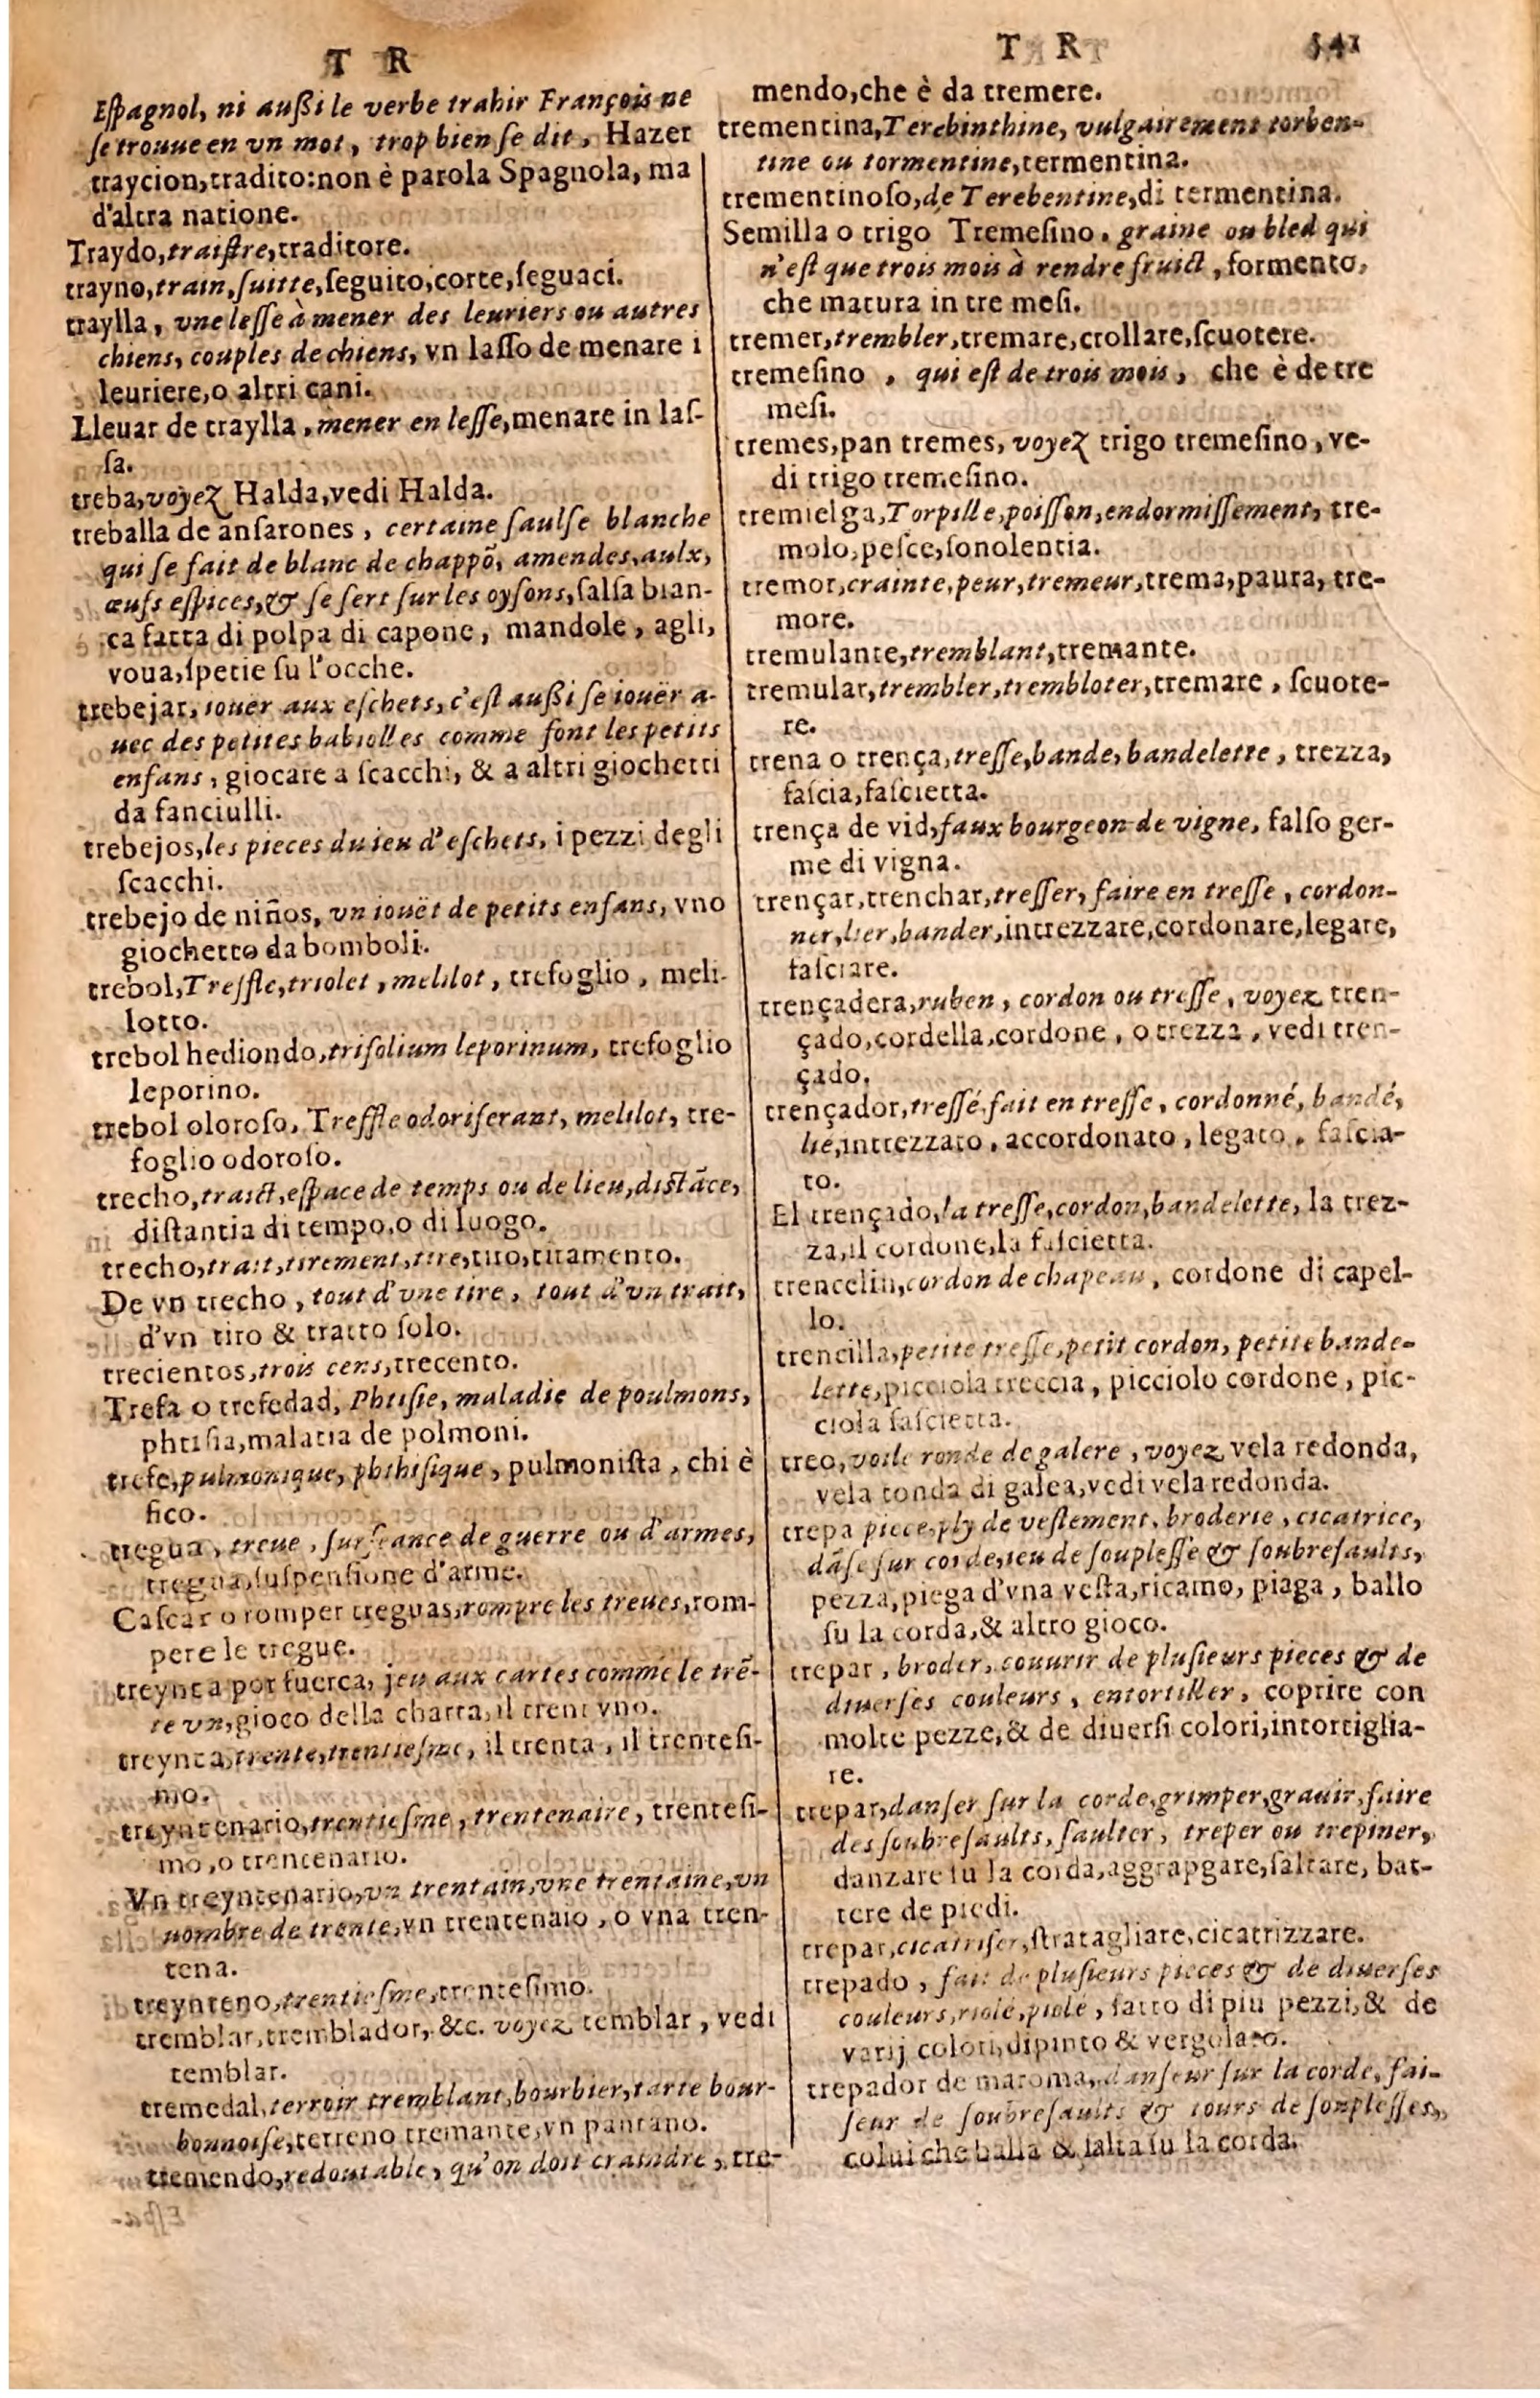 T R
Eſpagnol, ni außi le verbe trahir François ne
ſe trouue en vn mot, trop bien ſe dit, Hazer
traycion,tradito:non è parola Spagnola, ma
d'altra natione.
Traydo,traiſtre,traditore.
trayno,train,ſuitte,ſeguito,corte,ſeguaci.
traylla, vne leſſe à mener des leuriers ou autres
chiens, couples de chiens, vn laſſo de menare i
leuriere,o altri cani.
Lleuar de traylla, mener en leſſe,menare in laſ-
ſa.
treba,voyez Halda,vedi Halda.
treballa de anſarones, certaine ſaulſe blanche
qui ſe fait de blanc de chappõ, amendes,aulx,
œufs eſpices,& ſe ſert ſur les oyſons,ſalſa bian-
ca fatta di polpa di capone, mandole, agli,
voua,ſpetie ſu l'ocche.
trebejar, iouër aux eſchets, c'eſt außi ſe iouër a-
uec des petites babiolles comme font les petits
enfans, giocare a ſcacchi, & a altri giochetti
da fanciulli.
trebejos,les pieces du ieu d'eſchets, i pezzi degli
ſcacchi.
trebejo de niños, vn iouët de petits enfans, vno
giochetto da bomboli.
trebol,Treffle,triolet, melilot, trefoglio, meli-
lotto.
trebol hediondo,trifolium leporinum, trefoglio
leporino.
trebol oloroſo, Treffle odoriferant, melilot, tre-
foglio odoroſo.
trecho,traict,eſpace de temps ou de lieu,diſtãce,
diſtantia di tempo,o di luogo.
trecho,trait,tirement,tire,tiro,tiramento.
De vn trecho, tout d'vne tire, tout d'vn trait,
d'vn tiro & tratto ſolo.
trecientos,trois cens,trecento.
Trefa o trefedad, Phtiſie, maladie de poulmons,
phtiſia,malatia de polmoni.
trefe,pulmonique, phthiſique, pulmoniſta, chi è
fico.
tregua, treue, ſurſeance de guerre ou d'armes,
tregua,ſuſpenſione d'arme.
Caſcar o romper treguas,rompre les treues,rom-
pere le tregue.
treynta por fuerca, jeu aux cartes comme le trẽ-
te vn,gioco della charta,il trent vno.
treynta,trente,trentieſme, il trenta, il trenteſi-
mo.
treyntenario,trentieſme, trentenaire, trenteſi-
mo,o trentenario.
Vn treyntenario,vn trentain,vne trentaine,vn
nombre de trente,vn trentenaio, o vna tren-
tena.
treynteno,trentieſme,trenteſimo.
tremblar,tremblador, &c. voyez temblar, vedi
temblar.
tremedal,terroir tremblant,bourbier,tarte bour-
bonnoiſe,terreno tremante,vn pantano.
tremendo,redoutable, qu'on doit craindre, tre-
T R 541
mendo,che è da tremere.
trementina,Terebinthine, vulgairement torben-
tine ou tormentine,termentina.
trementinoſo,de Terebentine,di termentina.
Semilla o trigo Tremeſino, graine ou bled qui
n'eſt que trois mois à rendre fruict, formento,
che matura in tre meſi.
tremer,trembler,tremare,crollare,ſcuotere.
tremeſino, qui eſt de trois mois, che è de tre
meſi.
tremes,pan tremes, voyez trigo tremeſino, ve-
di trigo tremeſino.
tremielga,Torpille,poiſſon,endormiſſement, tre-
molo,peſce,ſonolentia.
tremor,crainte,peur,tremeur,trema,paura, tre-
more.
tremulante,tremblant,tremante.
tremular,trembler,trembloter,tremare, ſcuote-
re.
trena o trença,treſſe,bande,bandelette, trezza,
faſcia,faſcietta.
trença de vid,faux bourgeon de vigne, falſo ger-
me di vigna.
trençar,trenchar,treſſer, faire en treſſe, cordon-
ner,lier,bander,intrezzare,cordonare,legare,
faſciare.
trençadera,ruben, cordon ou treſſe, voyez tren-
çado,cordella,cordone, o trezza, vedi tren-
çado.
trençador,treſſé,fait en treſſe, cordonné, bandé,
lié,intrezzato, accordonato, legato, faſcia-
to.
El trençado,la treſſe,cordon,bandelette, la trez-
za,il cordone,la faſcietta.
trencelin,cordon de chapeau, cordone di capel-
lo.
trencilla,petite treſſe,petit cordon, petite bande-
lette,picciola treccia, picciolo cordone, pic-
ciola faſcietta.
treo, voile ronde de galere, voyez vela redonda,
vela tonda di galea,vedi vela redonda.
trepa piece,ply de veſtement, broderie, cicatrice,
dãſe ſur corde,ieu de ſoupleſſe & ſoubreſaults,
pezza,piega d'vna veſta,ricamo, piaga, ballo
ſu la corda,& altro gioco.
trepar, broder, couurir de pluſieurs pieces & de
diuerſes couleurs, entortiller, coprire con
molte pezze,& de diuerſi colori,intortiglia-
re.
trepar,danſer ſur la corde,grimper,grauir,faire
des ſoubreſaults, ſaulter, treper ou trepiner,
danzare ſu la corda,aggrapgare,ſaltare, bat-
tere de piedi.
trepar,cicatriſer,ſtratagliare,cicatrizzare.
trepado, fait de pluſieurs pieces & de diuerſes
couleurs,riolé,piolé, fatto di piu pezzi,& de
varij colori,dipinto & vergolato.
trepador de maroma, danſeur ſur la corde, fai-
ſeur de ſoubreſaults & tours de ſoupleſſes,
colui che balla & ſalta ſu la corda.
Eſpa-